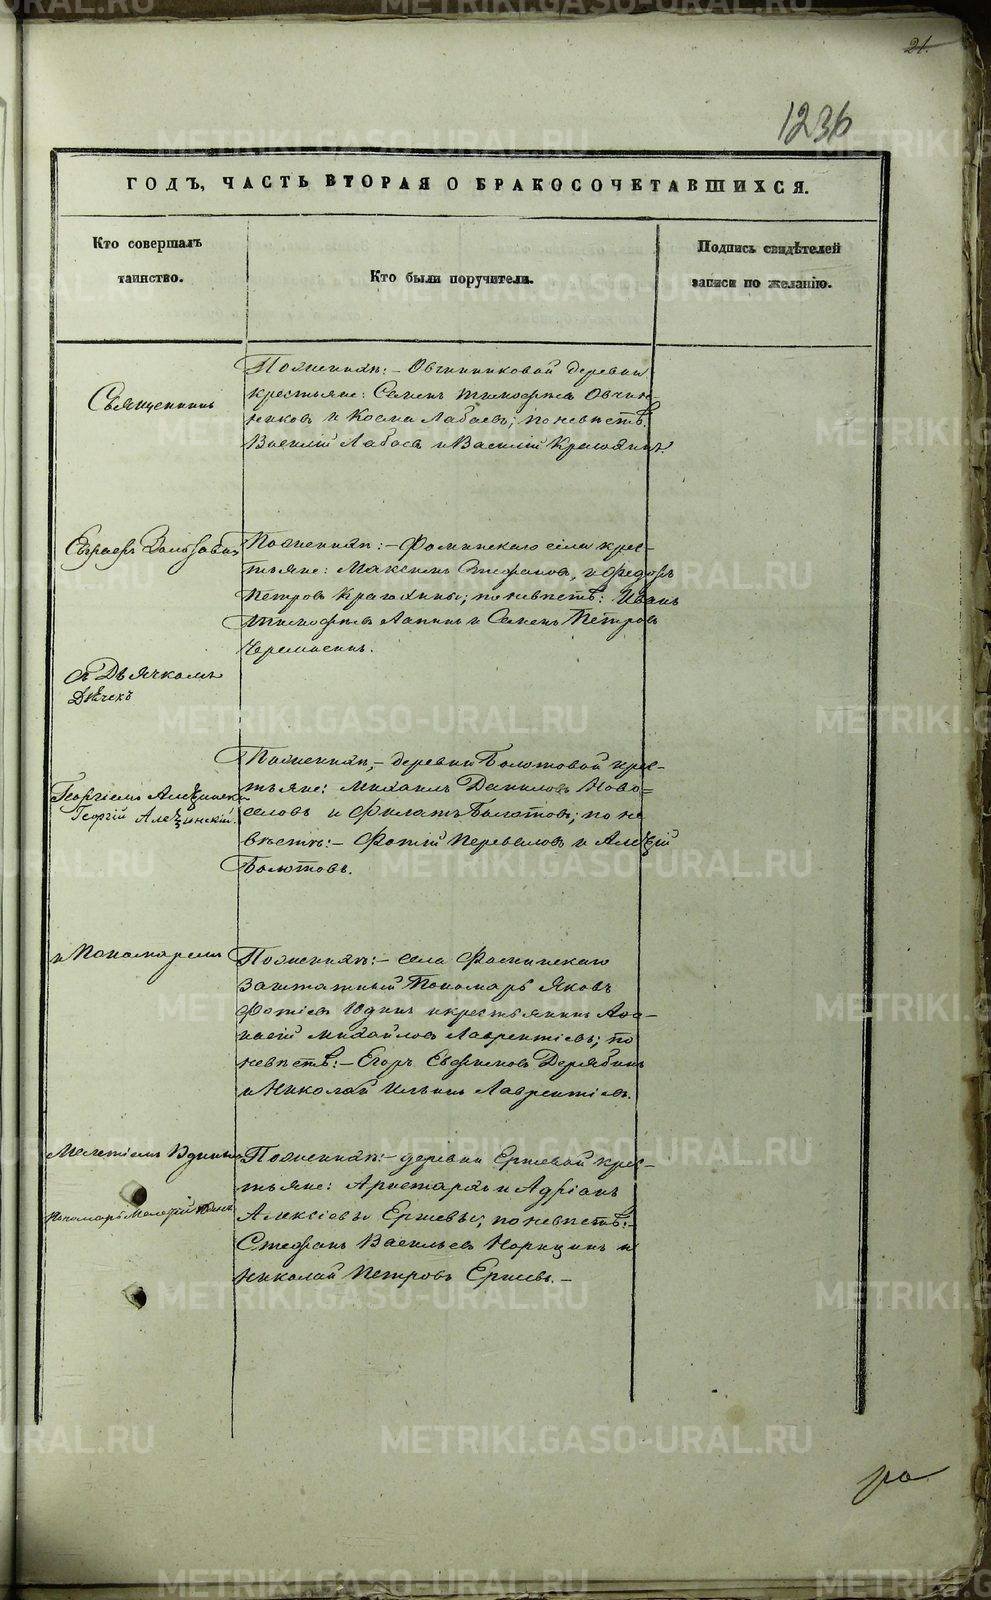 21.
1236
ГОДЪ, ЧАСТЬ ВТОРАЯ О БРАКОСОЧЕТАВШИХСЯ.
Кто совершалъ
таинство.
Кто были поручители.
Подпись свидѣтелей
записи по желанію.
Священникъ
По женихѣ:- Овчинниковой деревни
крестьяне: Семенъ Тимофѣевъ Овчин-
никовъ и Косма Лабаевъ; по невѣстѣ:
Василій Лабаевъ и Василій
По женихѣ:- Фоминскаго села крес-
тьяне: Максимъ Стефановъ, и Федоръ
Петровъ; по невѣстѣ: Иванъ
Тимофѣевъ Лапинъ и Семенъ Петровъ
Черемисинъ.
съ Дьячкомъ
Дьячекъ
По женихѣ,- деревни Болотовой крес-
тьяне: Михаилъ Даниловъ Ново-
селовъ и Филатъ Болотовъ; по не
вѣстѣ:- Фотій Переваловъ и
Болотовъ.
Георгіемъ
Георгій
и Пономаремъ
По женихѣ:- села Фоминскаго
заштатный Пономарь Яковъ
Фотіевъ Юдинъ и крестьянинъ Афа-
насій Михайловъ Лаврентіевъ; по
невѣстѣ:- Егоръ Евфимовъ Дерябинъ
и Николай Ильинъ Лаврентіевъ.
Мелетіемъ Юдинымъ
Пономарь Мелетій Юдинъ
По женихѣ:- деревни Ершевой крес-
тьяне: Аристархъ и Адріанъ
Алексіевы Ершевы; по невѣстѣ:-
Стефанъ Васильевъ Норицинъ и
Николай Петровъ Ершевъ.-
ра
METRIKI.GASO-URAL.RU